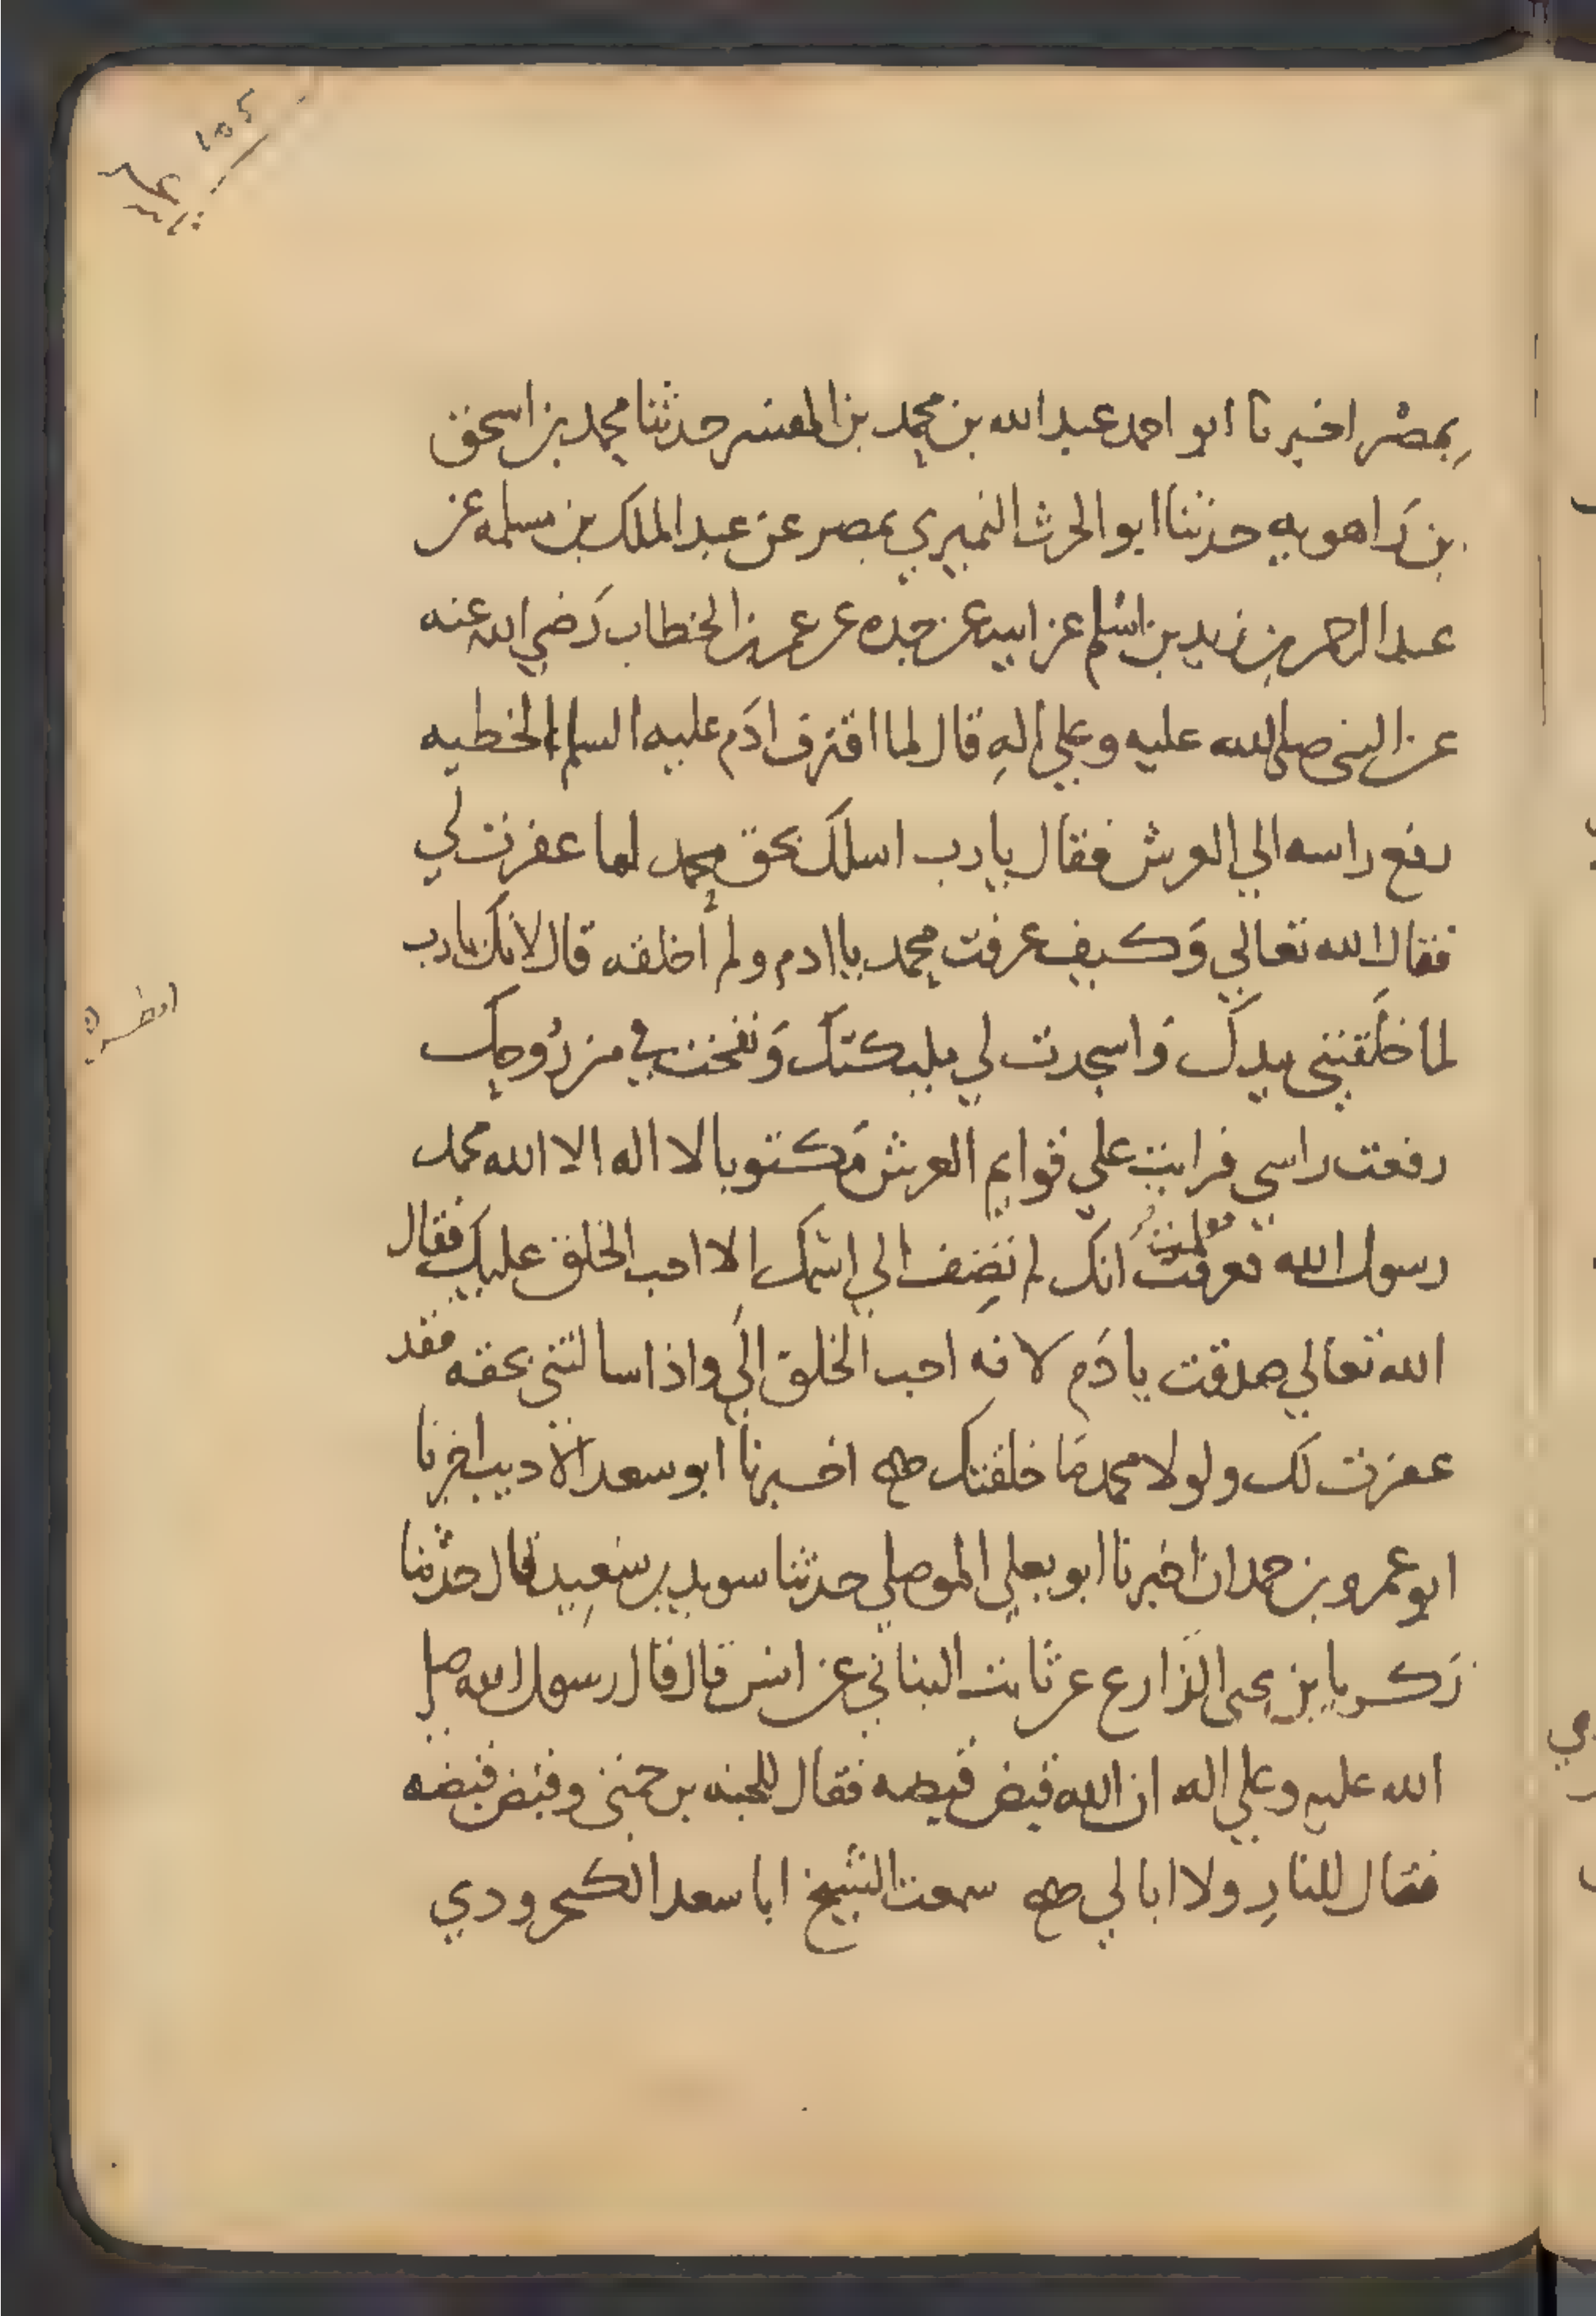 ١٥٢
بمصر اخبرنا ابو احمد عبدالله بن محمد بن المفسر حدثنا محمد بن اسحق
بن راهويه حدثنا ابو الحرث النميري بمصر عن عبد الملك بن مسلمه عن
عبد الرحمن بن زيد بن اسلم عن ابيه عن جده عن عمر بن الخطاب رضي الله عنه
عن النبى صلى الله عليه وعلي اله قال لما اقترف ادم عليه السلم الخطيه
رفع راسه الي العرش فقال يا رب اسلك بحق محمد لما غفرت لي
فقال الله تعالي وكيف عرفت محمد يا ادم ولم اخلقه قال لانك يا رب
لما خلقتنى بيدك واسجدت لي مليكتك ونفخت في من روحك
رفعت راسي فرايت علي قوايم العرش مكتوبا لا اله الا الله محمد
رسول الله فعرفت انك لم تضف الي اسمك الا احب الخلق عليك فقال
الله تعالي صدقت يادم لانه احب الخلق الي واذا سالتنى بحقه فقد
غفرت لك ولولا محمد ما خلقتك صح اخبرنا ابو سعد الاديب اخبرنا
ابو عمرو بن حمدان اخبرنا ابو يعلي الموصلي حدثنا سويد بن سعيد قال حدثنا
زكريا بن يحيى الذارع عن ثابت البناني عن انس قال قال رسول الله صلى
الله عليه وعلي اله ان الله قبض قبضه فقال للجنه برحمتى وقبض قبضه
فقال للنار ولا ابالي صح سمعت الشيخ ابا سعد الكنجرودي